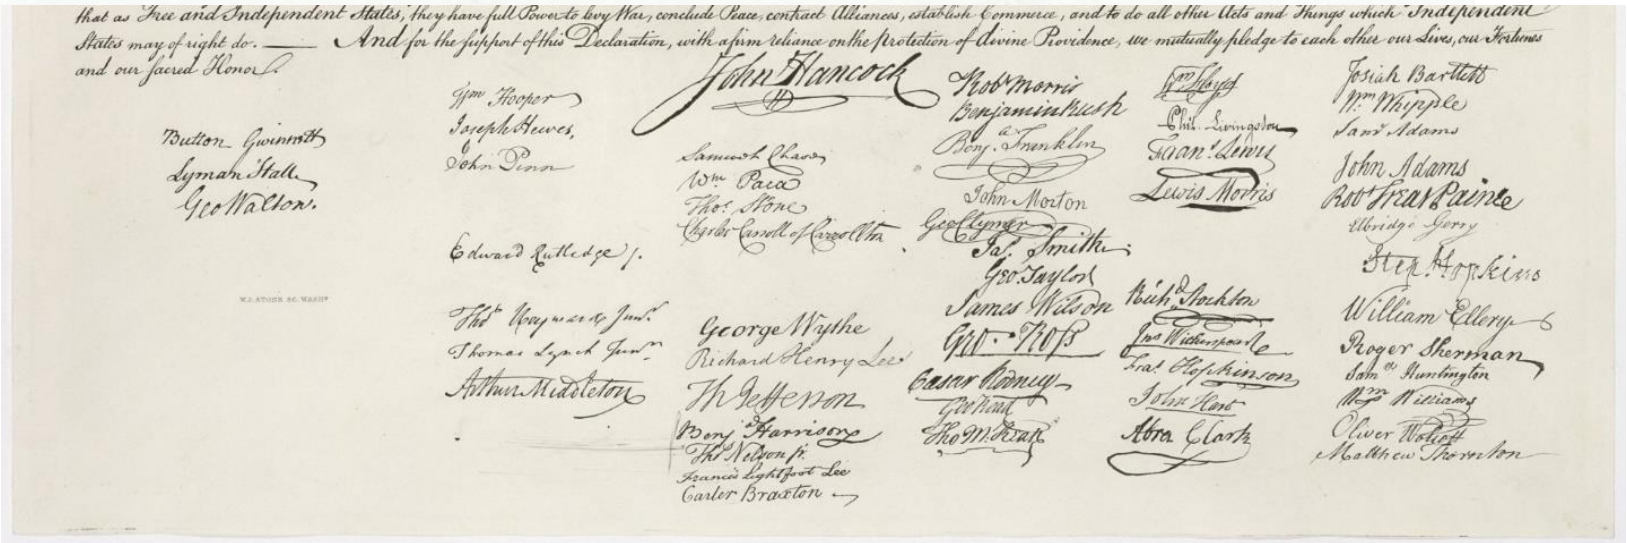 that as Free and Independent States, they have full Power to levy War, conclude Peace, contract Alliances, establish Commerce, and to do all other Acts and Things which Independent
States may of right do. — And for the support of this Declaration, with a firm reliance on the protection of divine Providence, we mutually pledge to each other our Lives, our Fortunes
and our sacred Honor.
Button Gwinnett
Lyman Hall
Geo Walton.
Wm Hooper
Joseph Hewes,
John Penn
Edward Rutledge /.
Thos Heyward Junr.
Thomas Lynch Junr.
Arthur Middleton
John Hancock
Samuel Chase
Wm. Paca
Thos. Stone
Charles Carroll of Carrollton
George Wythe
Richard Henry Lee
Th Jefferson
Benja Harrison
Thos Nelson jr.
Francis Lightfoot Lee
Carter Braxton
Robt Morris
Benjamin Rush
Benja. Franklin
John Morton
Geo Clymer
Jas. Smith
Geo. Taylor
James Wilson
Geo. Ross
Caesar Rodney
Geo Read
Tho M:Kean
Wm Floyd
Phil. Livingston
Frans. Lewis
Lewis Morris
Richd. Stockton
Jno Witherspoon
Fras. Hopkinson
John Hart
Abra Clark
Josiah Bartlett
Wm. Whipple
Saml Adams
John Adams
Robt Treat Paine
Elbridge Gerry
Step. Hopkins
William Ellery
Roger Sherman
Samel Huntington
Wm. Williams
Oliver Wolcott
Matthew Thornton
W.J. STONE SC. WASHN.